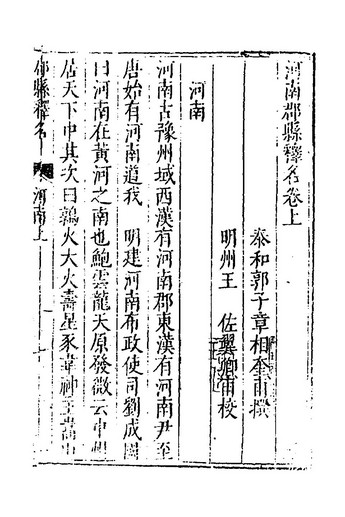 河南郡縣釋名卷上
泰和郭子章相奎甫撰
明州王 佐翼卿甫校
河南
河南古豫州域西漢有河南郡東漢有河南尹至
唐始有河南道我 明建河南布政使司劉成國
曰河南在黃河之南也鮑雲龍天原發微云中州
居天下中其次曰鶉火大火壽星豕韋神主嵩山
郡縣釋名 河南上